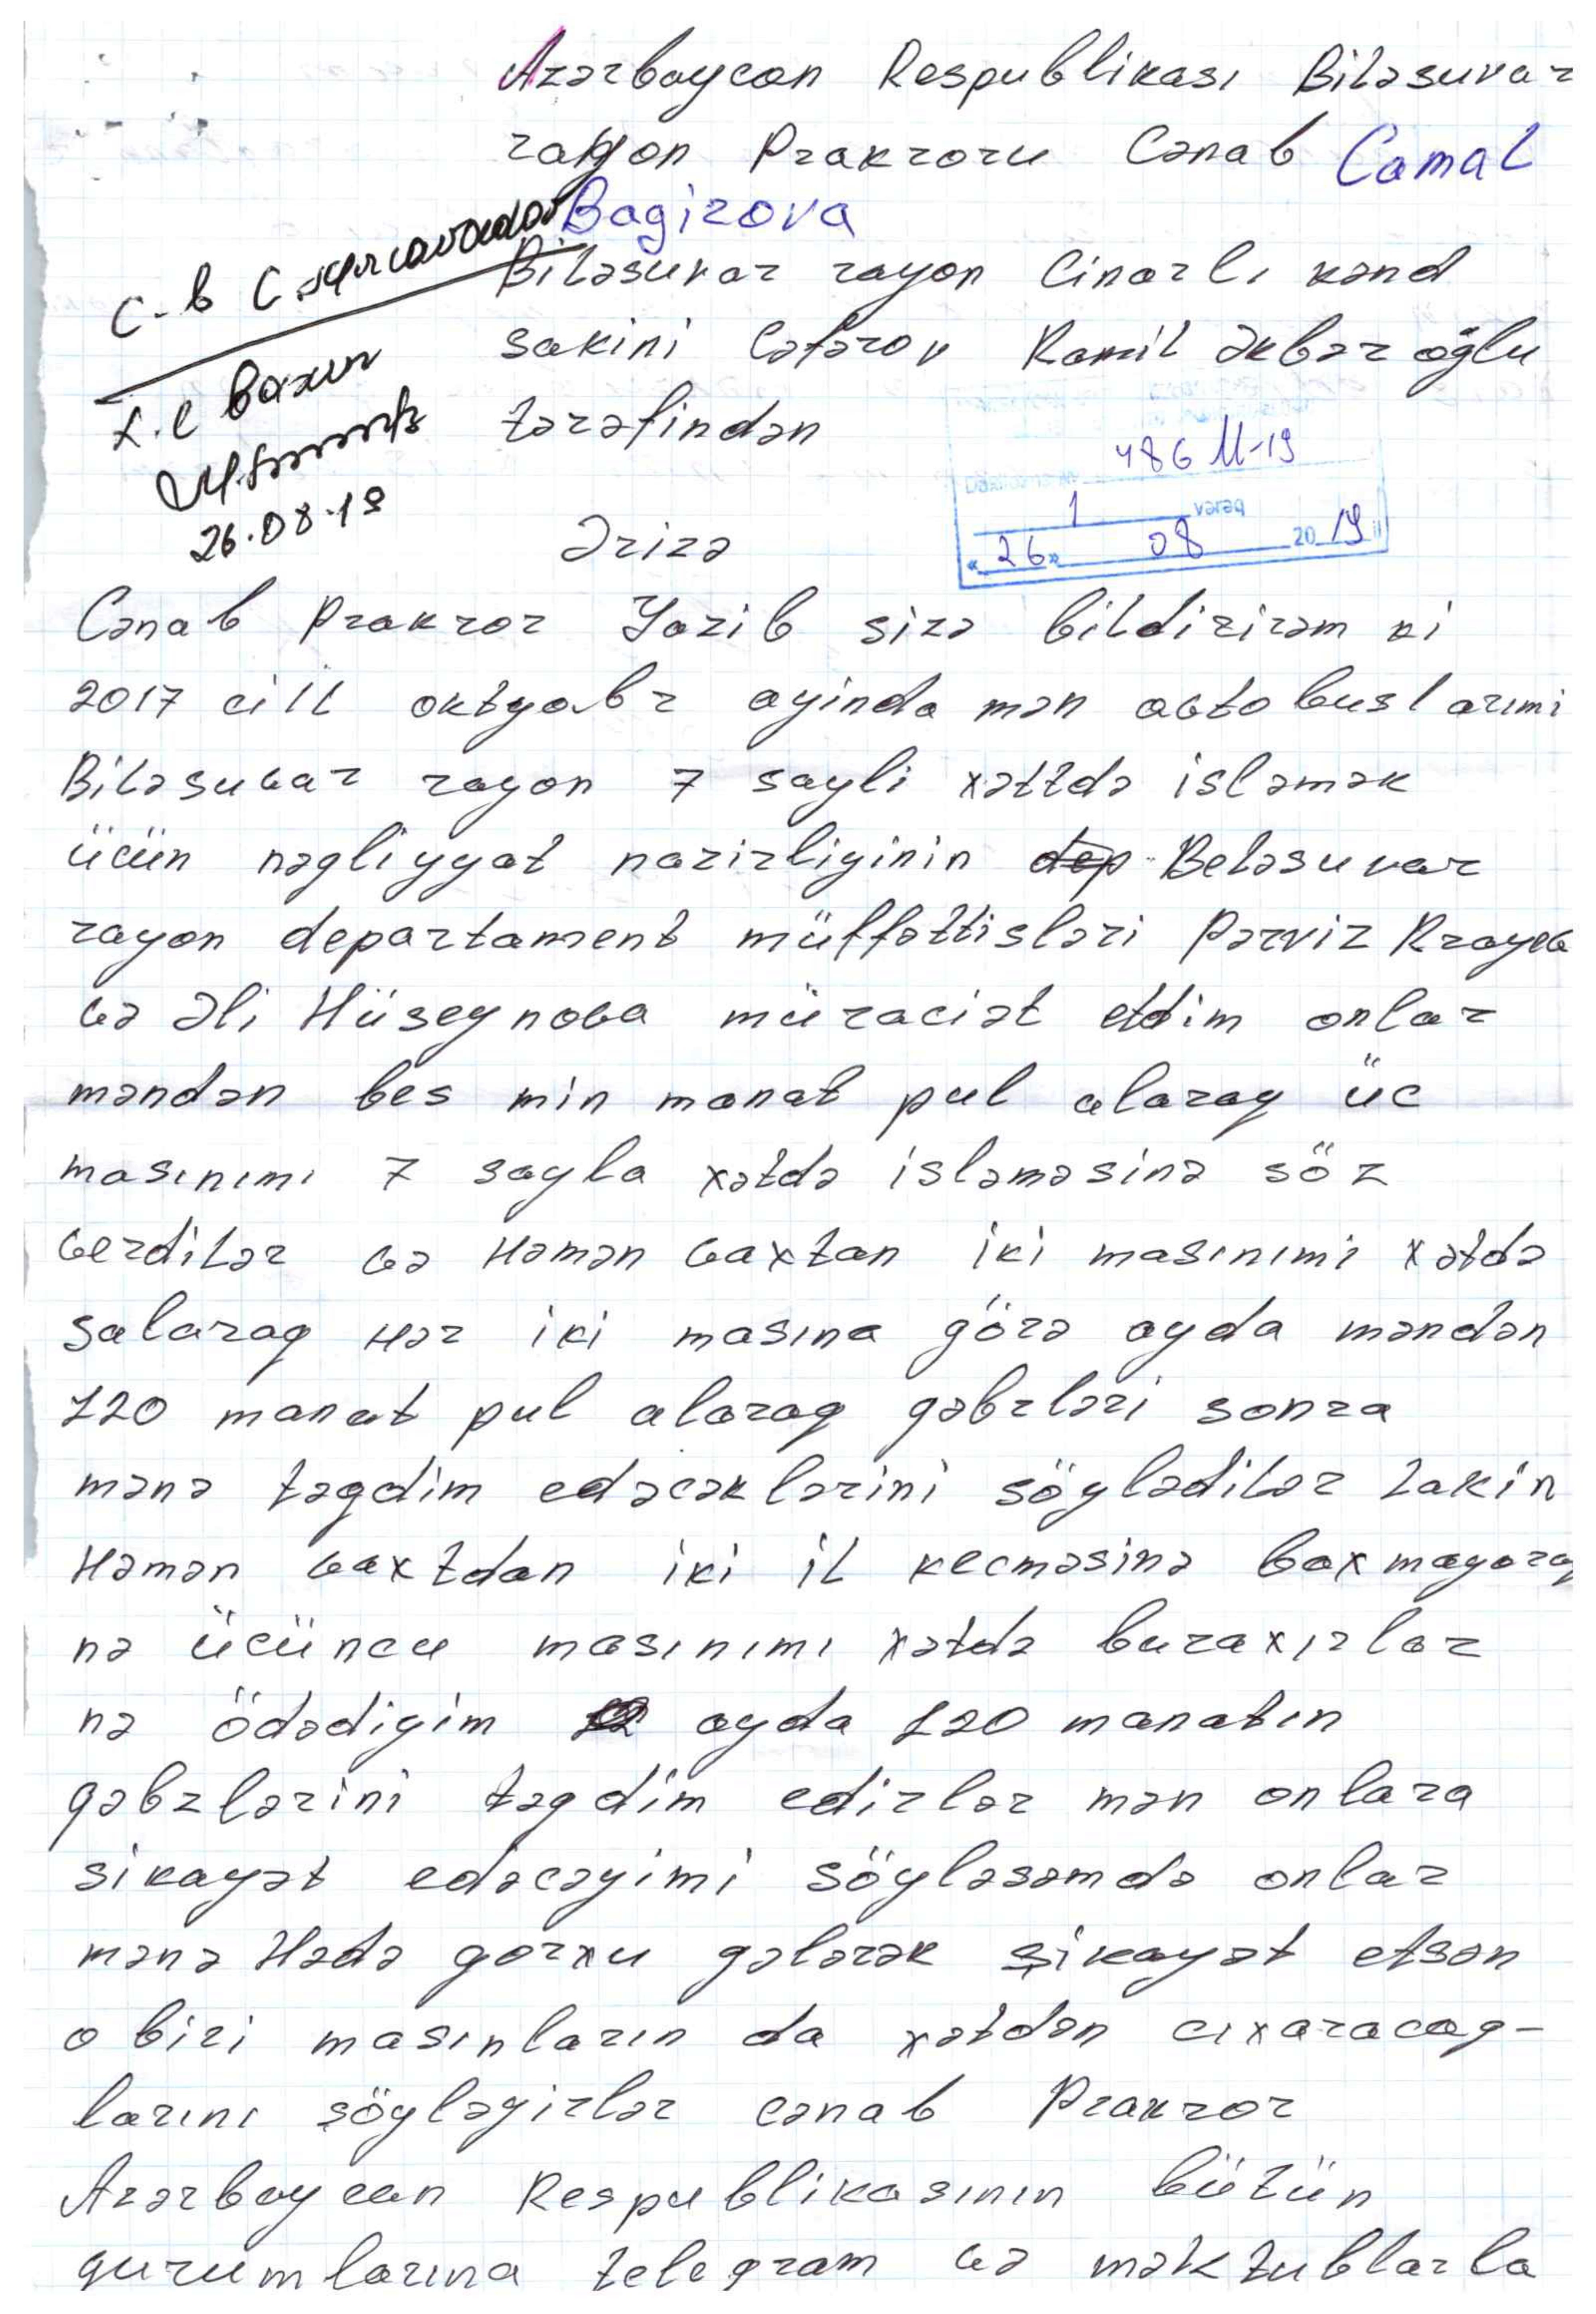 Azərbaycan Respublikası Biləsuvar
rayon Prakroru Cənab Camal
Bagirova
Biləsuvar rayon Cinarlı kənd
sakini Cəfərov Ramil Əkbər oğlu
tərəfindən
C-b C.
baxın
26.08.19
486 M-19
1 vərəq
«26» 08 2019 il
Ərizə
Cənab Prakror Yazib sizə bildirirəm ki
2017 ci il oktyabr ayinda mən avtobuslarımi
Biləsuvar rayon 7 sayli xəttdə isləmək
ücün nəgliyyat nazirliyinin dep Beləsuvar
rayon departament müffəttisləri Pərviz Rzayev
və Əli Hüseynova müraciət etdim onlar
məndən bes min manat pul alaraq üc
masınımı 7 sayla xətdə isləməsinə söz
verdilər və Həmən vaxtan iki masınımi xətdə
salaraq Hər iki masına görə ayda məndən
120 manat pul alaraq qəbzləri sonra
mənə təqdim edəcəklərini söylədilər Lakin
Həmən vaxtdan iki il kecməsinə baxmayaraq
nə ücüncu masınımı xətdə buraxırlar
nə ödədigim ayda 120 manatın
qəbzlərini təqdim edirlər mən onlara
sikayət edəcəyimi söyləsəmdə onlar
mənə Hədə qorxu gələrək şikayət etsən
o biri masınların da xətdən cıxaracaq-
larını söyləyirlər cənab Prakror
Azərbaycan Respublikasının bütün
qurumlarına telegram və məktublarla